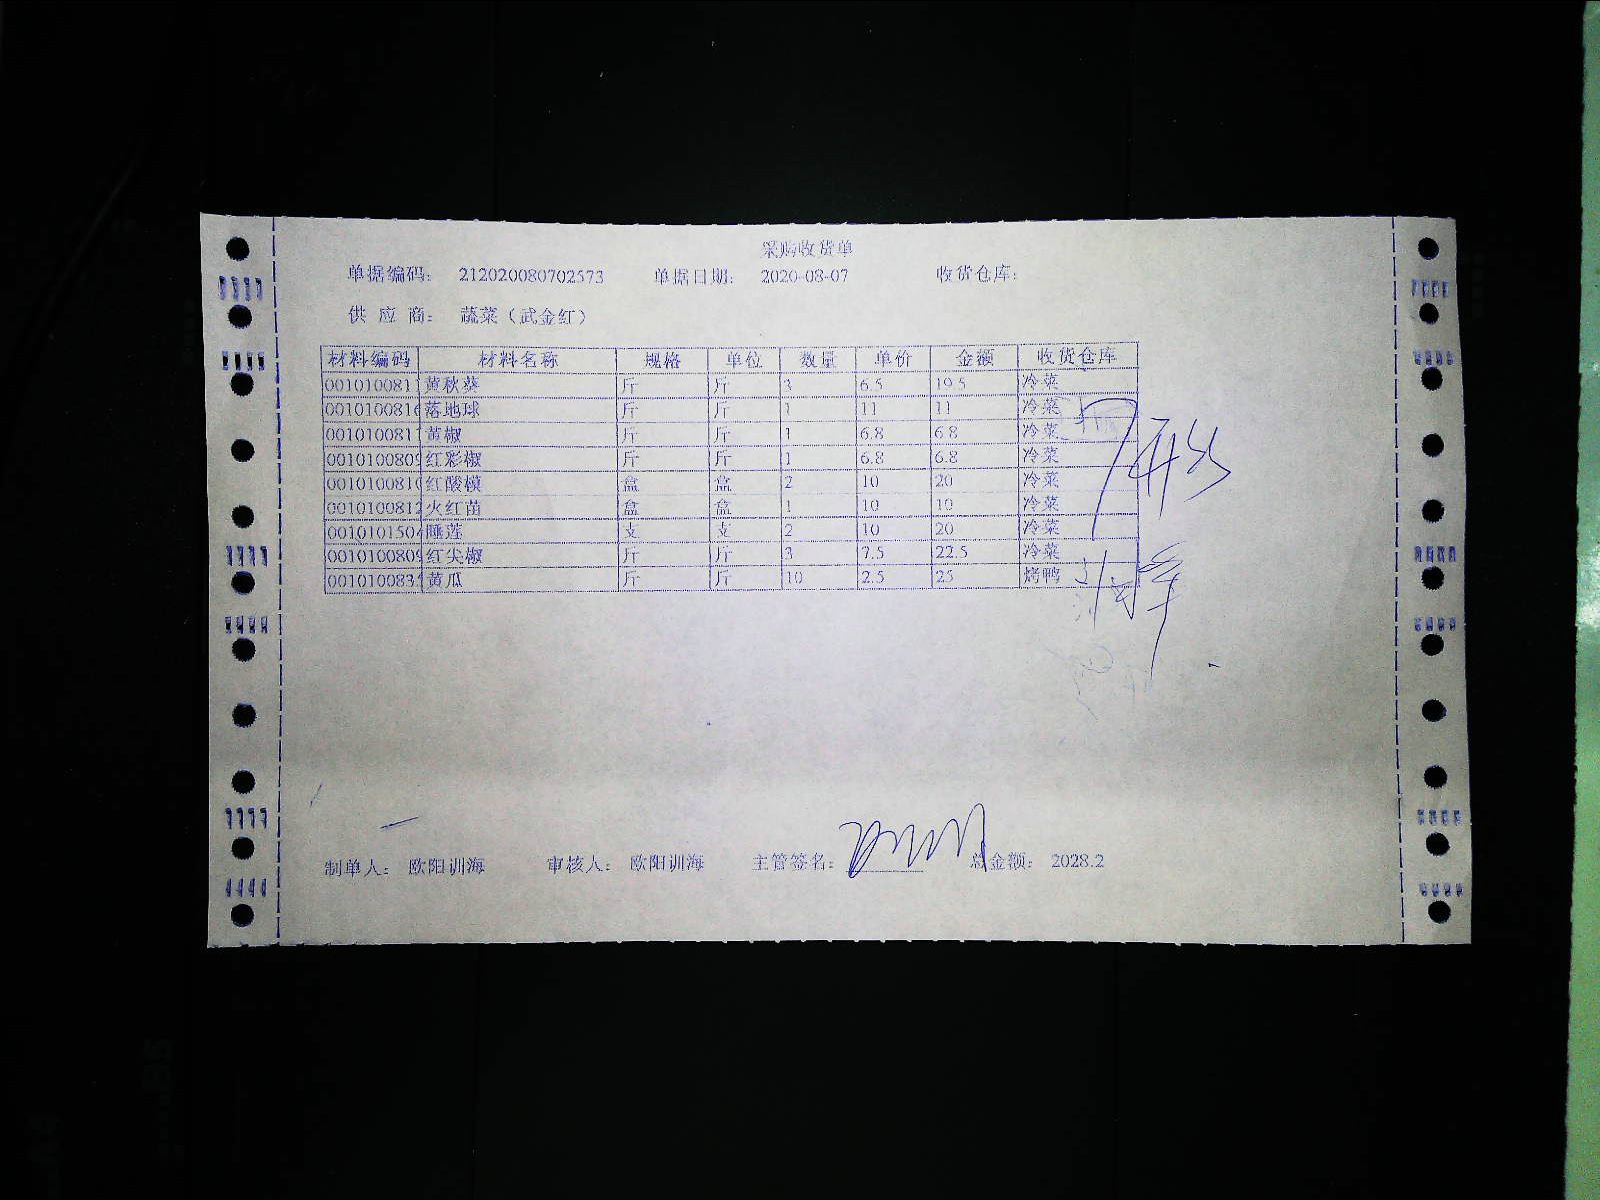 采购收货单
单据编码： 212020080702573 单据日期： 2020-08-07 收货仓库：
供 应 商： 蔬菜（武金红）
材料编码 材料名称 规格 单位 数量 单价 金额 收货仓库
001010081 黄秋葵 斤 斤 3 6.5 19.5 冷菜
0010100816 落地球 斤 斤 1 11 11 冷菜
001010081 黄椒 斤 斤 1 6.8 6.8 冷菜
001010080 红彩椒 斤 斤 1 6.8 6.8 冷菜
001010081 红酸模 盒 盒 2 10 20 冷菜
0010100812 火红苗 盒 盒 1 10 10 冷菜
001010150 睡莲 支 支 2 10 20 冷菜
001010080 红尖椒 斤 斤 3 7.5 22.5 冷菜
001010083 黄瓜 斤 斤 10 2.5 25 烤鸭
制单人： 欧阳训海 审核人： 欧阳训海 主管签名： 总金额： 2028.2